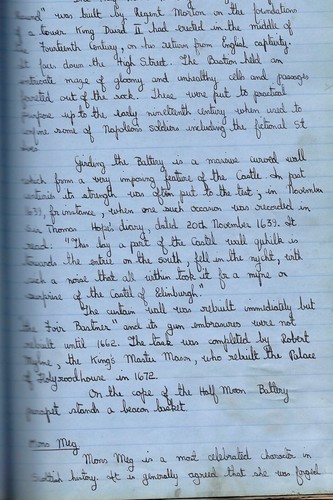 was built by Regent Morton on the foundations
of a tower King David II had erected in the middle of
the Fourteenth Century, on his return from English captivity.
It faces down the High Street. The Bastion held an
intricate maze of gloomy and unhealthy cells and passages
out of the rock. These were put to practical
purpose up to the early nineteenth century when used to
some of Napoleon's soldiers including the fictional St
Girding the Battery is a massive curved wall
which forms a very imposing feature of the Castle. In past
centuries its strength was often put to the test; in November
1639, for instance, when one such occasion was recorded in
Thomas Hope's diary, dated 20th November 1639. It
read: "This day a part of the Castel wall quhilk is
towards the entrie on the south, fell in the nycht, with
such a noise that all within took it for a myne or
surprise of the Castel of Edinburgh."
The curtain wall was rebuilt immediately but
the Fair Brastner" and its gun embrasures were not
rebuilt until 1662. The task was completed by Robert
Mylne, the King's Master Mason, who rebuilt the Palace
of Holyroodhouse in 1672.
On the cope of the Half Moon Battery
parapet stands a beacon basket.
Mons Meg
Mons Meg is a most celebrated character in
Scottish history. It is generally agreed that she was forged